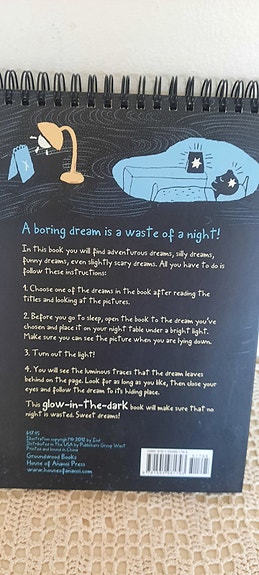 A boring dream is a waste of a night!
In this book you will find adventurous dreams, silly dreams,
funny dreams, even slightly scary dreams. All you have to do is
follow these instructions:
1. Choose one of the dreams in the book after reading the
titles and looking at the pictures.
2. Before you go to sleep, open the book to the dream you've
chosen and place it on your night table under a bright light.
Make sure you can see the picture when you are lying down.
3. Turn out the light!
4. You will see the luminous traces that the dream leaves
behind on the page. Look for as long as you like, then close your
eyes and follow the dream to its hiding place.
This glow-in-the-dark book will make sure that no
night is wasted. Sweet dreams!
$17.95
Illustration copyright © 2012 by
Distributed in the USA by Publishers Group West
Printed and bound in China
Groundwood Books
House of Anansi Press
www.houseofanansi.com